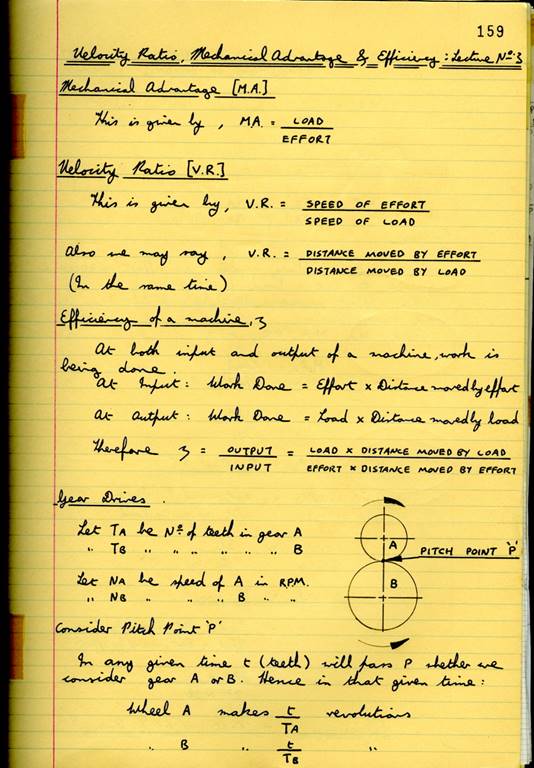 159
Velocity Ratio, Mechanical Advantage & Efficiency : Lecture No. 3
Mechanical Advantage [M.A.]
This is given by, MA. = LOAD
EFFORT
Velocity Ratio [V.R.]
This is given by, V.R. = SPEED OF EFFORT
SPEED OF LOAD
Also we may say, V.R. = DISTANCE MOVED BY EFFORT
DISTANCE MOVED BY LOAD
(In the same time)
Efficiency of a machine, ȝ
At both input and output of a machine, work is
being done.
At Input: Work Done = Effort x Distance moved by effort
At Output: Work Done = Load x Distance moved by load
Therefore ȝ = OUTPUT = LOAD x DISTANCE MOVED BY LOAD
INPUT EFFORT x DISTANCE MOVED BY EFFORT
Gear Drives.
Let TA be No. of teeth in gear A
" TB " " " " " " B
A
PITCH POINT 'P'
B
Let NA be speed of A in RPM.
" NB " " " B " "
Consider Pitch Point 'P'
In any given time t (teeth) will pass P whether we
consider gear A or B. Hence in that given time:
Wheel A makes t revolutions
TA
" B " t "
TB